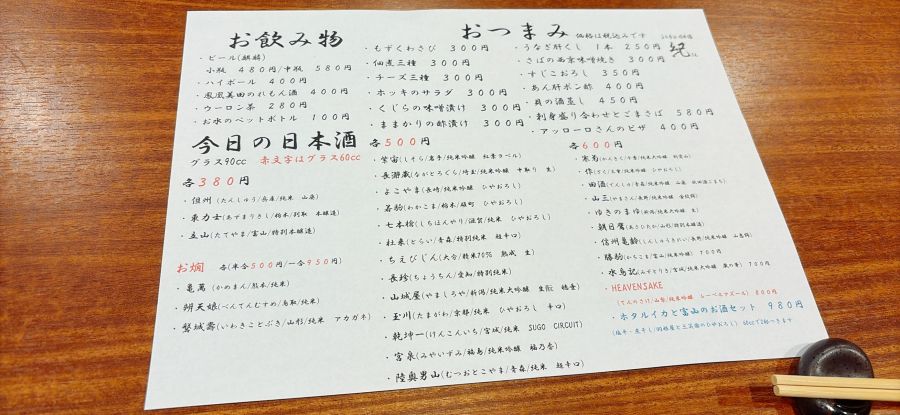 お飲み物
・ビール(麒麟)
小瓶 480円/中瓶 580円
・ハイボール 400円
・鳳凰美田のれもん酒 400円
・ウーロン茶 280円
・お水のペットボトル 100円
おつまみ 価格は税込みです
・もずくわさび 300円
・佃煮三種 300円
・チーズ三種 300円
・ホッキのサラダ 300円
・くじらの味噌漬け 300円
・ままかりの酢漬け 300円
・うなぎ肝くし 1本 250円
・さばの西京味噌焼き 300円
・すじこおろし 350円
・あん肝ポン酢 400円
・貝の酒蒸し 450円
・刺身盛り合わせとごまさば 580円
・アッローロさんのピザ 400円
今日の日本酒
グラス90cc 赤文字はグラス60cc
各380円
・但州(たんしゅう/兵庫/純米 山廃)
・東力士(あずまりきし/栃木/別取 本醸造)
・立山(たてやま/富山/特別本醸造)
お燗 各(半合500円/一合950円)
・亀萬(かめまん/熊本/純米)
・辨天娘(べんてんむすめ/鳥取/純米)
・磐城壽(いわきことぶき/山形/純米 アカガネ)
各500円
・紫宙(しそら/岩手/純米吟醸 紅葉ラベル)
・長瀞蔵(ながとろくら/埼玉/純米吟醸 中取り 生)
・よこやま(長崎/純米吟醸 ひやおろし)
・若駒(わかこま/栃木/雄町 ひやおろし)
・七本槍(しちほんやり/滋賀/純米 ひやおろし)
・杜來(とらい/青森/特別純米 超辛口)
・ちえびじん(大分/精米70% 熟成 生)
・長珍(ちょうちん/愛知/特別純米)
・山城屋(やましろや/新潟/純米大吟醸 生酛 穂雲)
・玉川(たまがわ/京都/純米 ひやおろし 辛口)
・乾坤一(けんこんいち/宮城/純米 SUGO CIRCUIT)
・宮泉(みやいずみ/福島/純米吟醸 福乃香)
・陸奥男山(むつおとこやま/青森/純米 超辛口)
各600円
・作(ざく/三重/純米吟醸 ひやおろし)
・田酒(でんしゅ/青森/純米大吟醸 山廃 秋田酒こまち)
・山三(やまさん/長野/純米吟醸 金紋錦)
・ゆきのまゆ(新潟/純米大吟醸 生)
・朝日鷹(あさひたか/山形/特別本醸造)
・信州亀齢(しんしゅうきれい/長野/純米吟醸 山恵錦)
・勝駒(かちこま/富山/純米吟醸) 700円
・水鳥記(みずとりき/宮城/純米大吟醸 蔵の華) 700円
・HEAVENSAKE
(てんのさけ/山形/純米吟醸 レーベルアズール) 800円
・ホタルイカと富山のお酒セット 980円